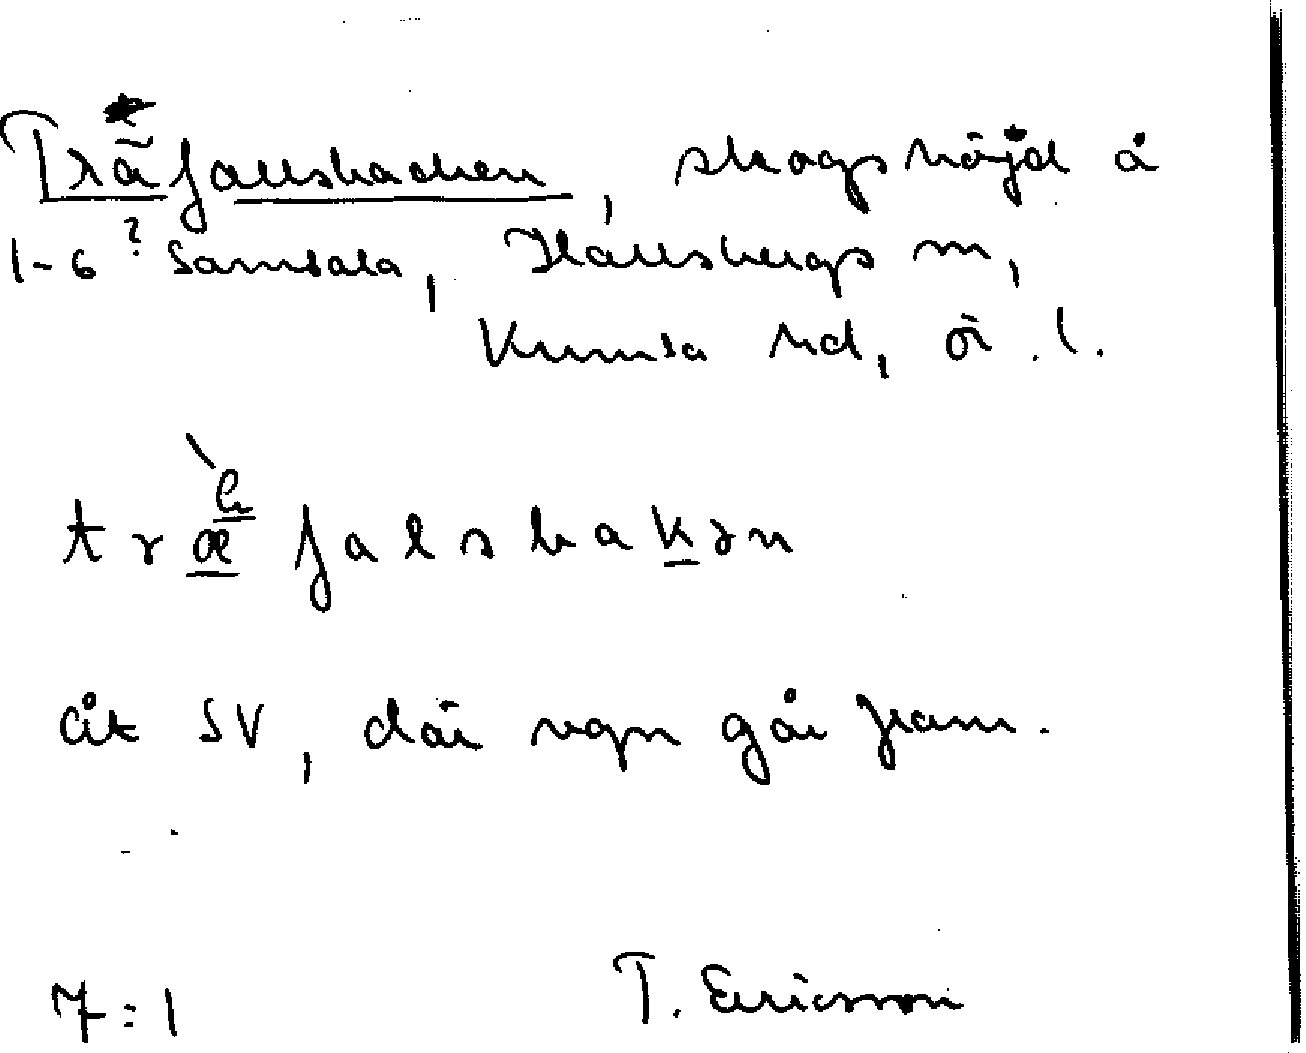 Träfallsbacken, skogshöjd å
1-6 ? Samsala, Hallsbergs sn,
Kumla hd, ör. l.
træfalsbakən
åt SV, där vgn går fram.
7:1 T. Ericsson